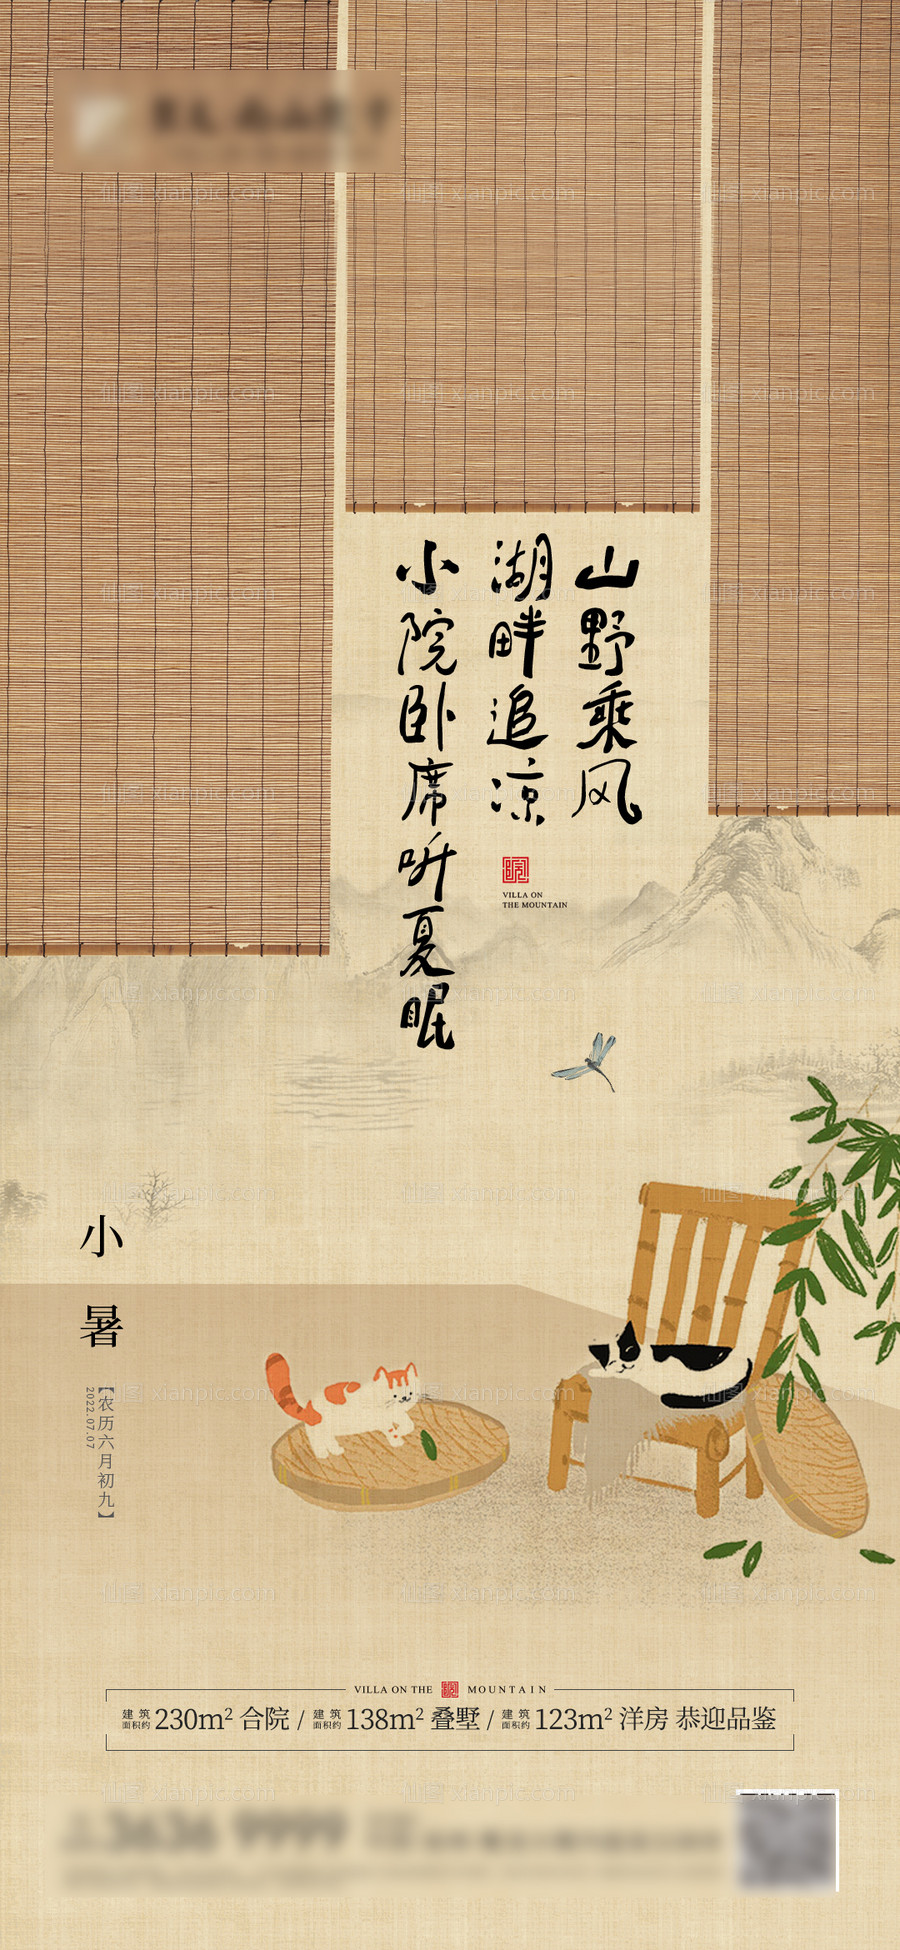 山野乘风
湖畔追凉
小院卧席听夏眠
VILLA ON
THE MOUNTAIN
小暑
【农历六月初九】
2022.07.07
VILLA ON THE MOUNTAIN
建筑面积约 230m² 合院 / 建筑面积约 138m² 叠墅 / 建筑面积约 123m² 洋房 恭迎品鉴
仙图 xianpic.com